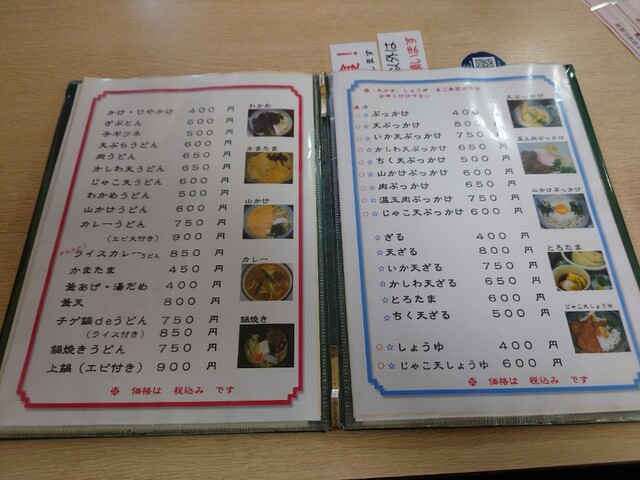 します
以外は
願います
かけ・ひやかけ 400 円
ざぶとん 600 円
子ギツネ 500 円
天ぷらうどん 600 円
肉うどん 650 円
かしわ天うどん 650 円
じゃこ天うどん 600 円
わかめうどん 500 円
山かけうどん 600 円
カレーうどん 750 円
(エビ天付き) 900 円
ライスカレーうどん 850 円
かまたま 450 円
釜あげ・湯だめ 400 円
釜天 800 円
チゲ鍋deうどん 750 円
(ライス付き) 850 円
鍋焼きうどん 750 円
上鍋(エビ付き) 900 円
※ 価格は 税込み です
わかめ
かまたま
山かけ
カレー
鍋焼き
※ 天かす、しょうが をご希望の方は
お申し付け下さい
温 冷
○☆ぶっかけ 400 円
○☆天ぶっかけ 800 円
○☆いか天ぶっかけ 750 円
○☆かしわ天ぶっかけ 650 円
○☆ちく天ぶっかけ 500 円
○☆山かけぶっかけ 600 円
○☆肉ぶっかけ 650 円
○☆温玉肉ぶっかけ 750 円
○☆じゃこ天ぶっかけ 600 円
☆ざる 400 円
☆天ざる 800 円
☆いか天ざる 750 円
☆かしわ天ざる 650 円
☆とろたま 600 円
☆ちく天ざる 500 円
○☆しょうゆ 400 円
○☆じゃこ天しょうゆ 600 円
※ 価格は 税込み です
天ぶっかけ
温玉肉ぶっかけ
山かけぶっかけ
とろたま
じゃこ天しょうゆ